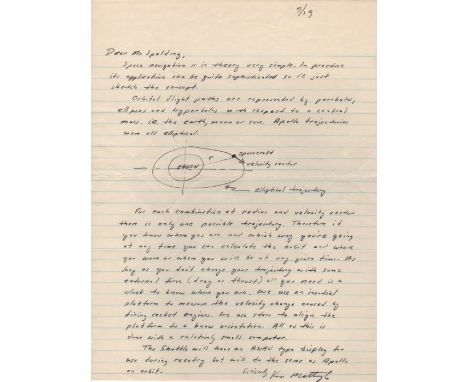 9/19
Dear Mr. Spalding,
Space navigation is in theory very simple. In practice
its application can be quite sophisticated so I'll just
sketch the concept.
Orbital flight paths are represented by parabolas,
ellipses and hyperbolas with respect to a central
mass. ie the earth, moon or sun. Apollo trajectories
were all elliptical.
spacecraft
r
velocity vector
EARTH
elliptical trajectory
For each combination of radius and velocity vector
there is only one possible trajectory. Therefore if
you know where you are and which way you're going
at any time you can calculate the orbit and where
you were or where you will be at any given time. As
long as you don't change your trajectory with some
external force (drag or thrust) all you need is a
clock to know where you are. We use an inertial
platform to measure the velocity change caused by
firing rocket engines. We use stars to align the
platform to a known orientation. All of this is
done with a relatively small computer.
The Shuttle will have an RNAV type display for
use during reentry but will do the same as Apollo
on orbit.
Sincerely Ken Mattingly